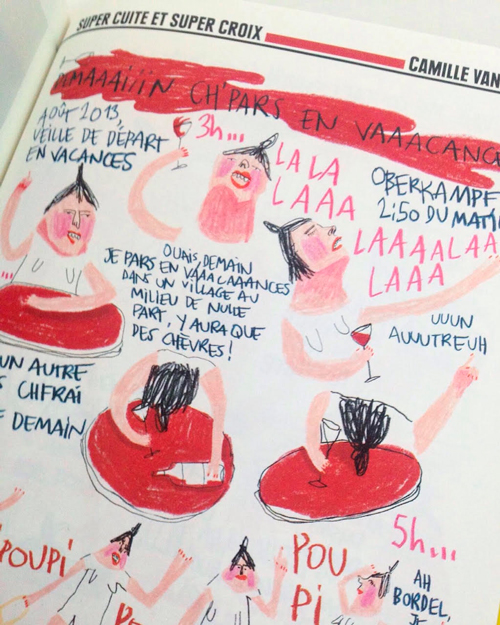 SUPER CUITE ET SUPER CROIX
CAMILLE VAN
DEMAAAiiiN CH'PARS EN VAAACANC
AOÛT 2013,
VEILLE DE DÉPART
EN VACANCES
3h...
LA LA
LAAA
OBERKAMPF
2:50 DU MATIN
LAAALAA
LAAA
OUAIS, DEMAIN
JE PARS EN VAAALAAANCES
DANS UN VILLAGE AU
MILIEU DE NULLE
PART, Y AURA QUE
DES CHÈVRES !
UUUN
AUUUTREUH
UN AUTRE
DEMAIN
POUPI
POU
PI
5h...
AH
BORDEL,
JE